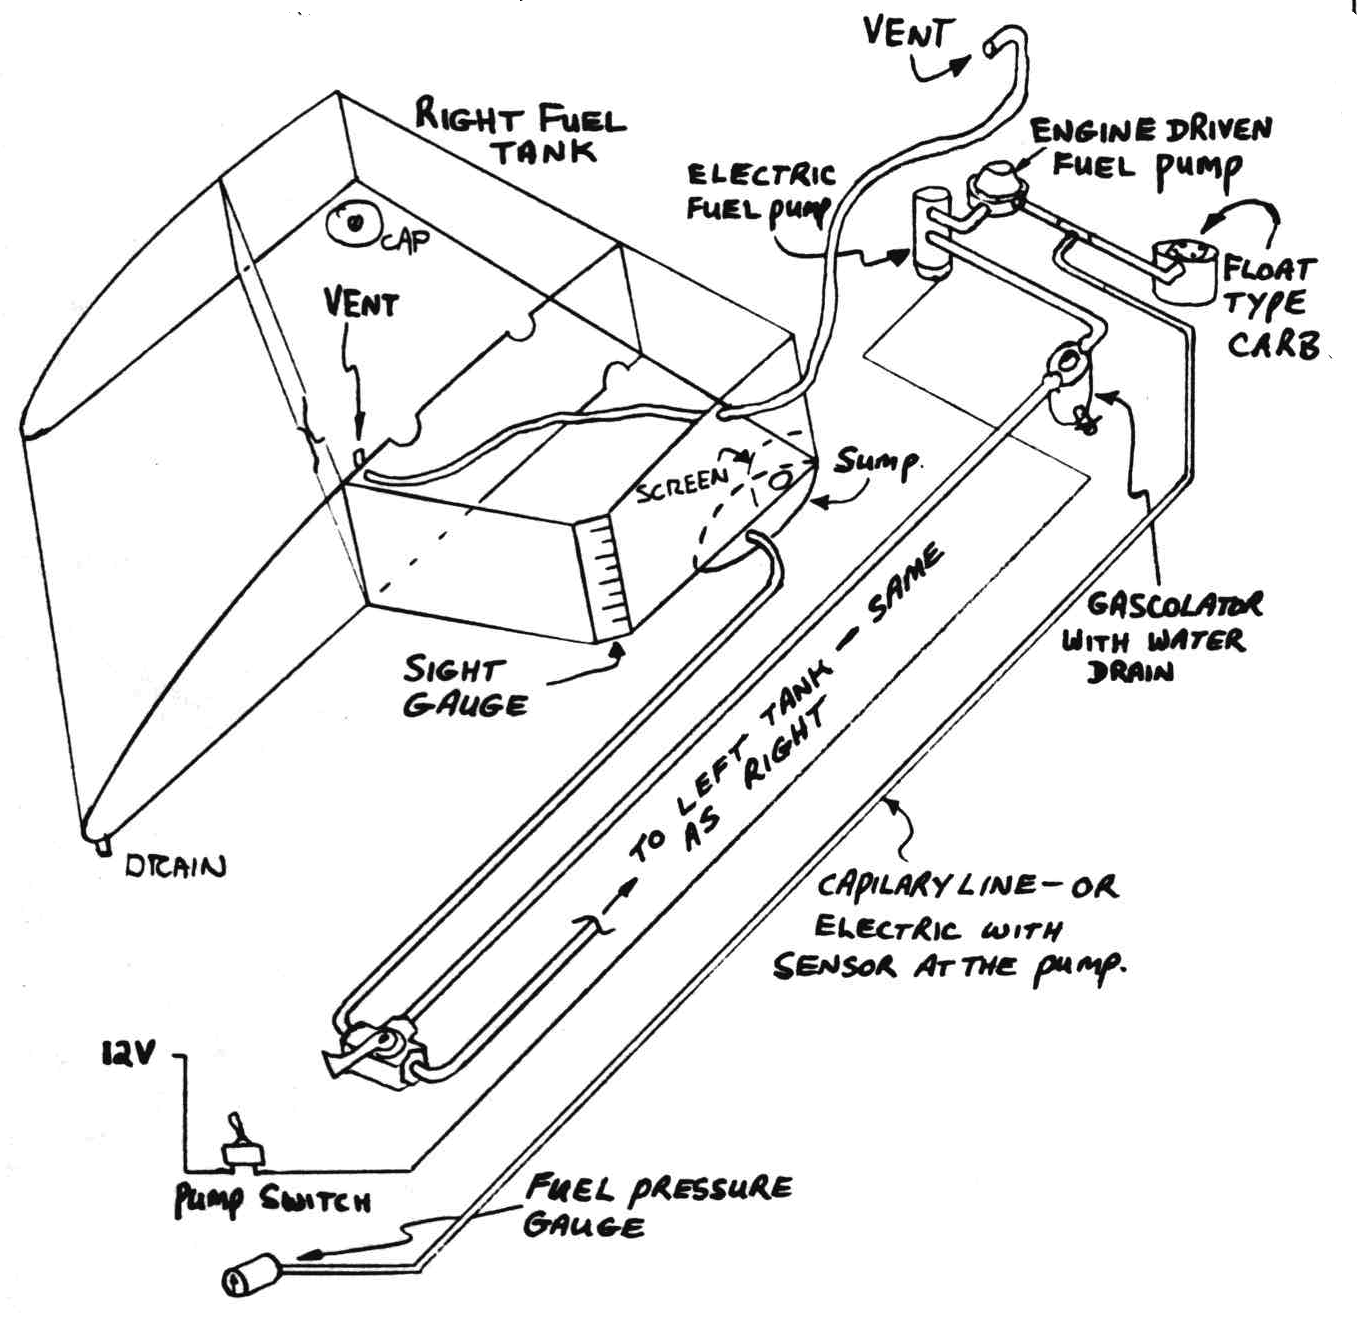 VENT
RIGHT FUEL
TANK
ENGINE DRIVEN
FUEL PUMP
ELECTRIC
FUEL PUMP
CAP
FLOAT
TYPE
CARB
VENT
SCREEN
SUMP.
GASCOLATOR
WITH WATER
DRAIN
SIGHT
GAUGE
TO LEFT TANK - SAME
AS RIGHT
DRAIN
CAPILARY LINE - OR
ELECTRIC WITH
SENSOR AT THE PUMP.
12V
PUMP SWITCH
FUEL PRESSURE
GAUGE